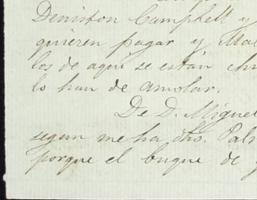 Deniston Campbell y
quieren pagar y Mac
los de aqui se estan
lo han de amolar.
De D. Miguel
segun me ha dho.
porque el buque de